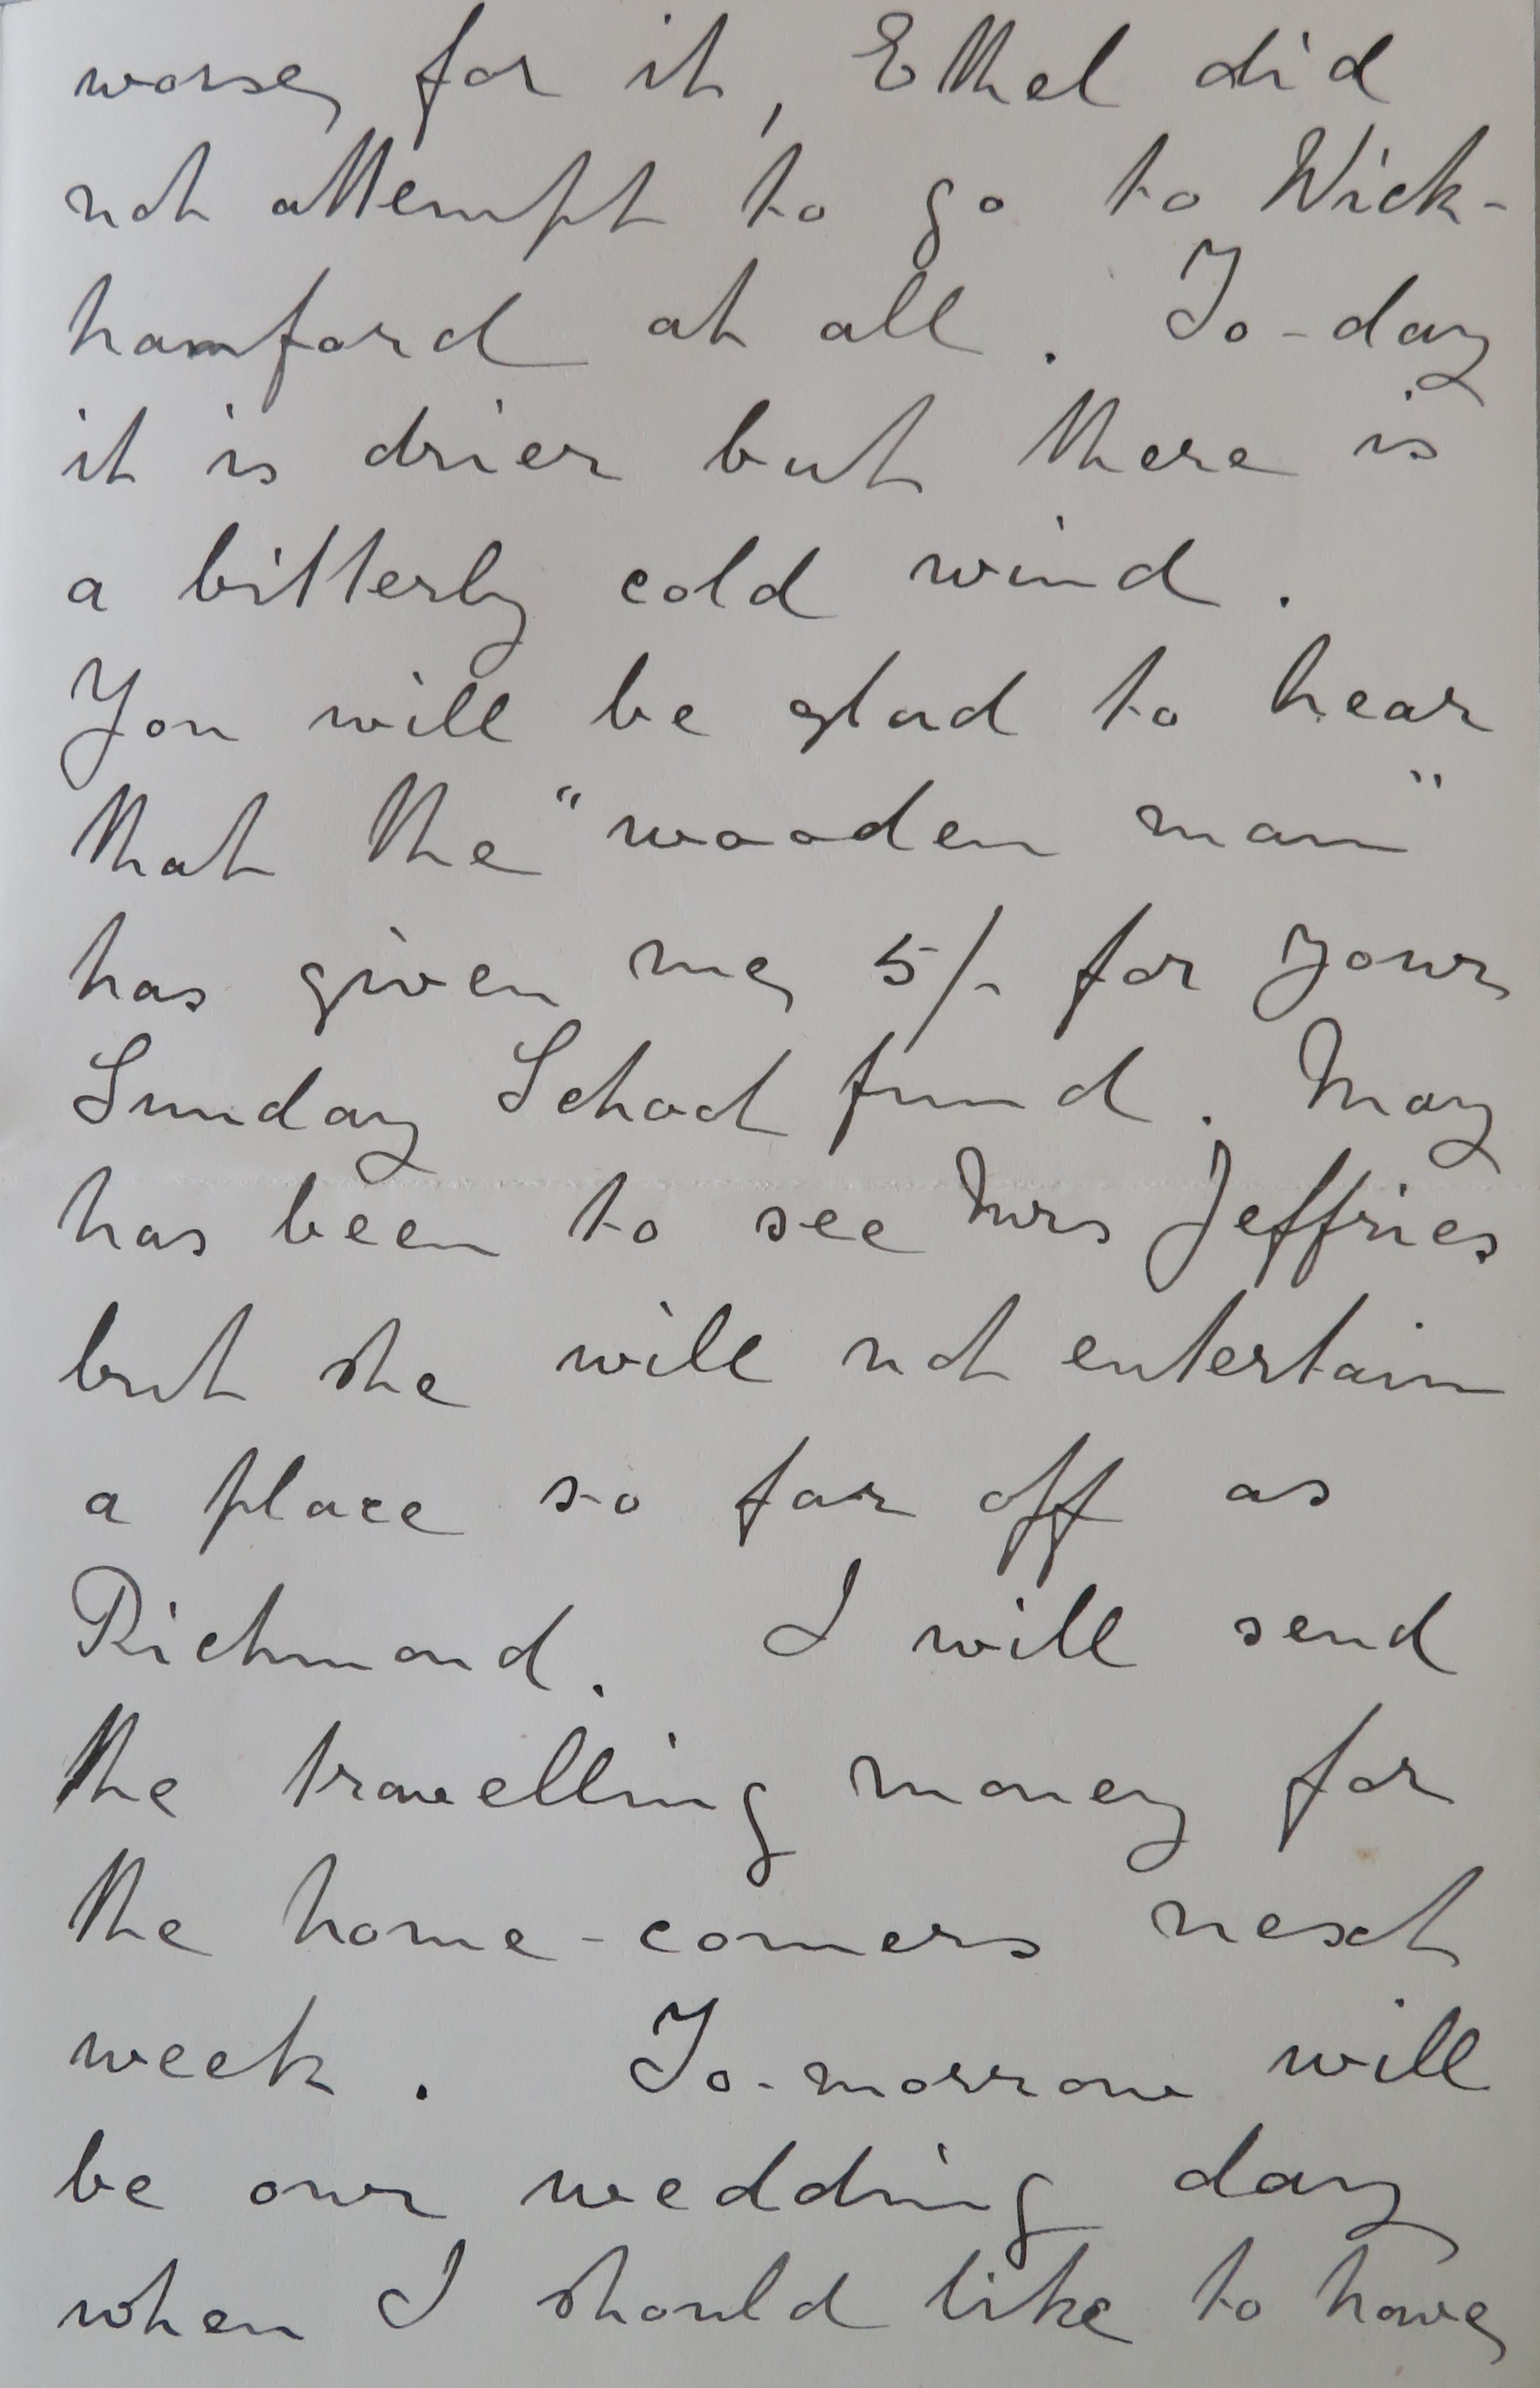 worse for it, Ethel did
not attempt to go to Wick-
hamford at all. To-day
it is drier but there is
a bitterly cold wind.
You will be glad to hear
that the "wooden man"
has given me 5/- for your
Sunday School fund. May
has been to see Mrs Jeffries
but she will not entertain
a place so far off as
Richmond. I will send
the travelling money for
the home-comers next
week. To-morrow will
be our wedding day
when I should like to have